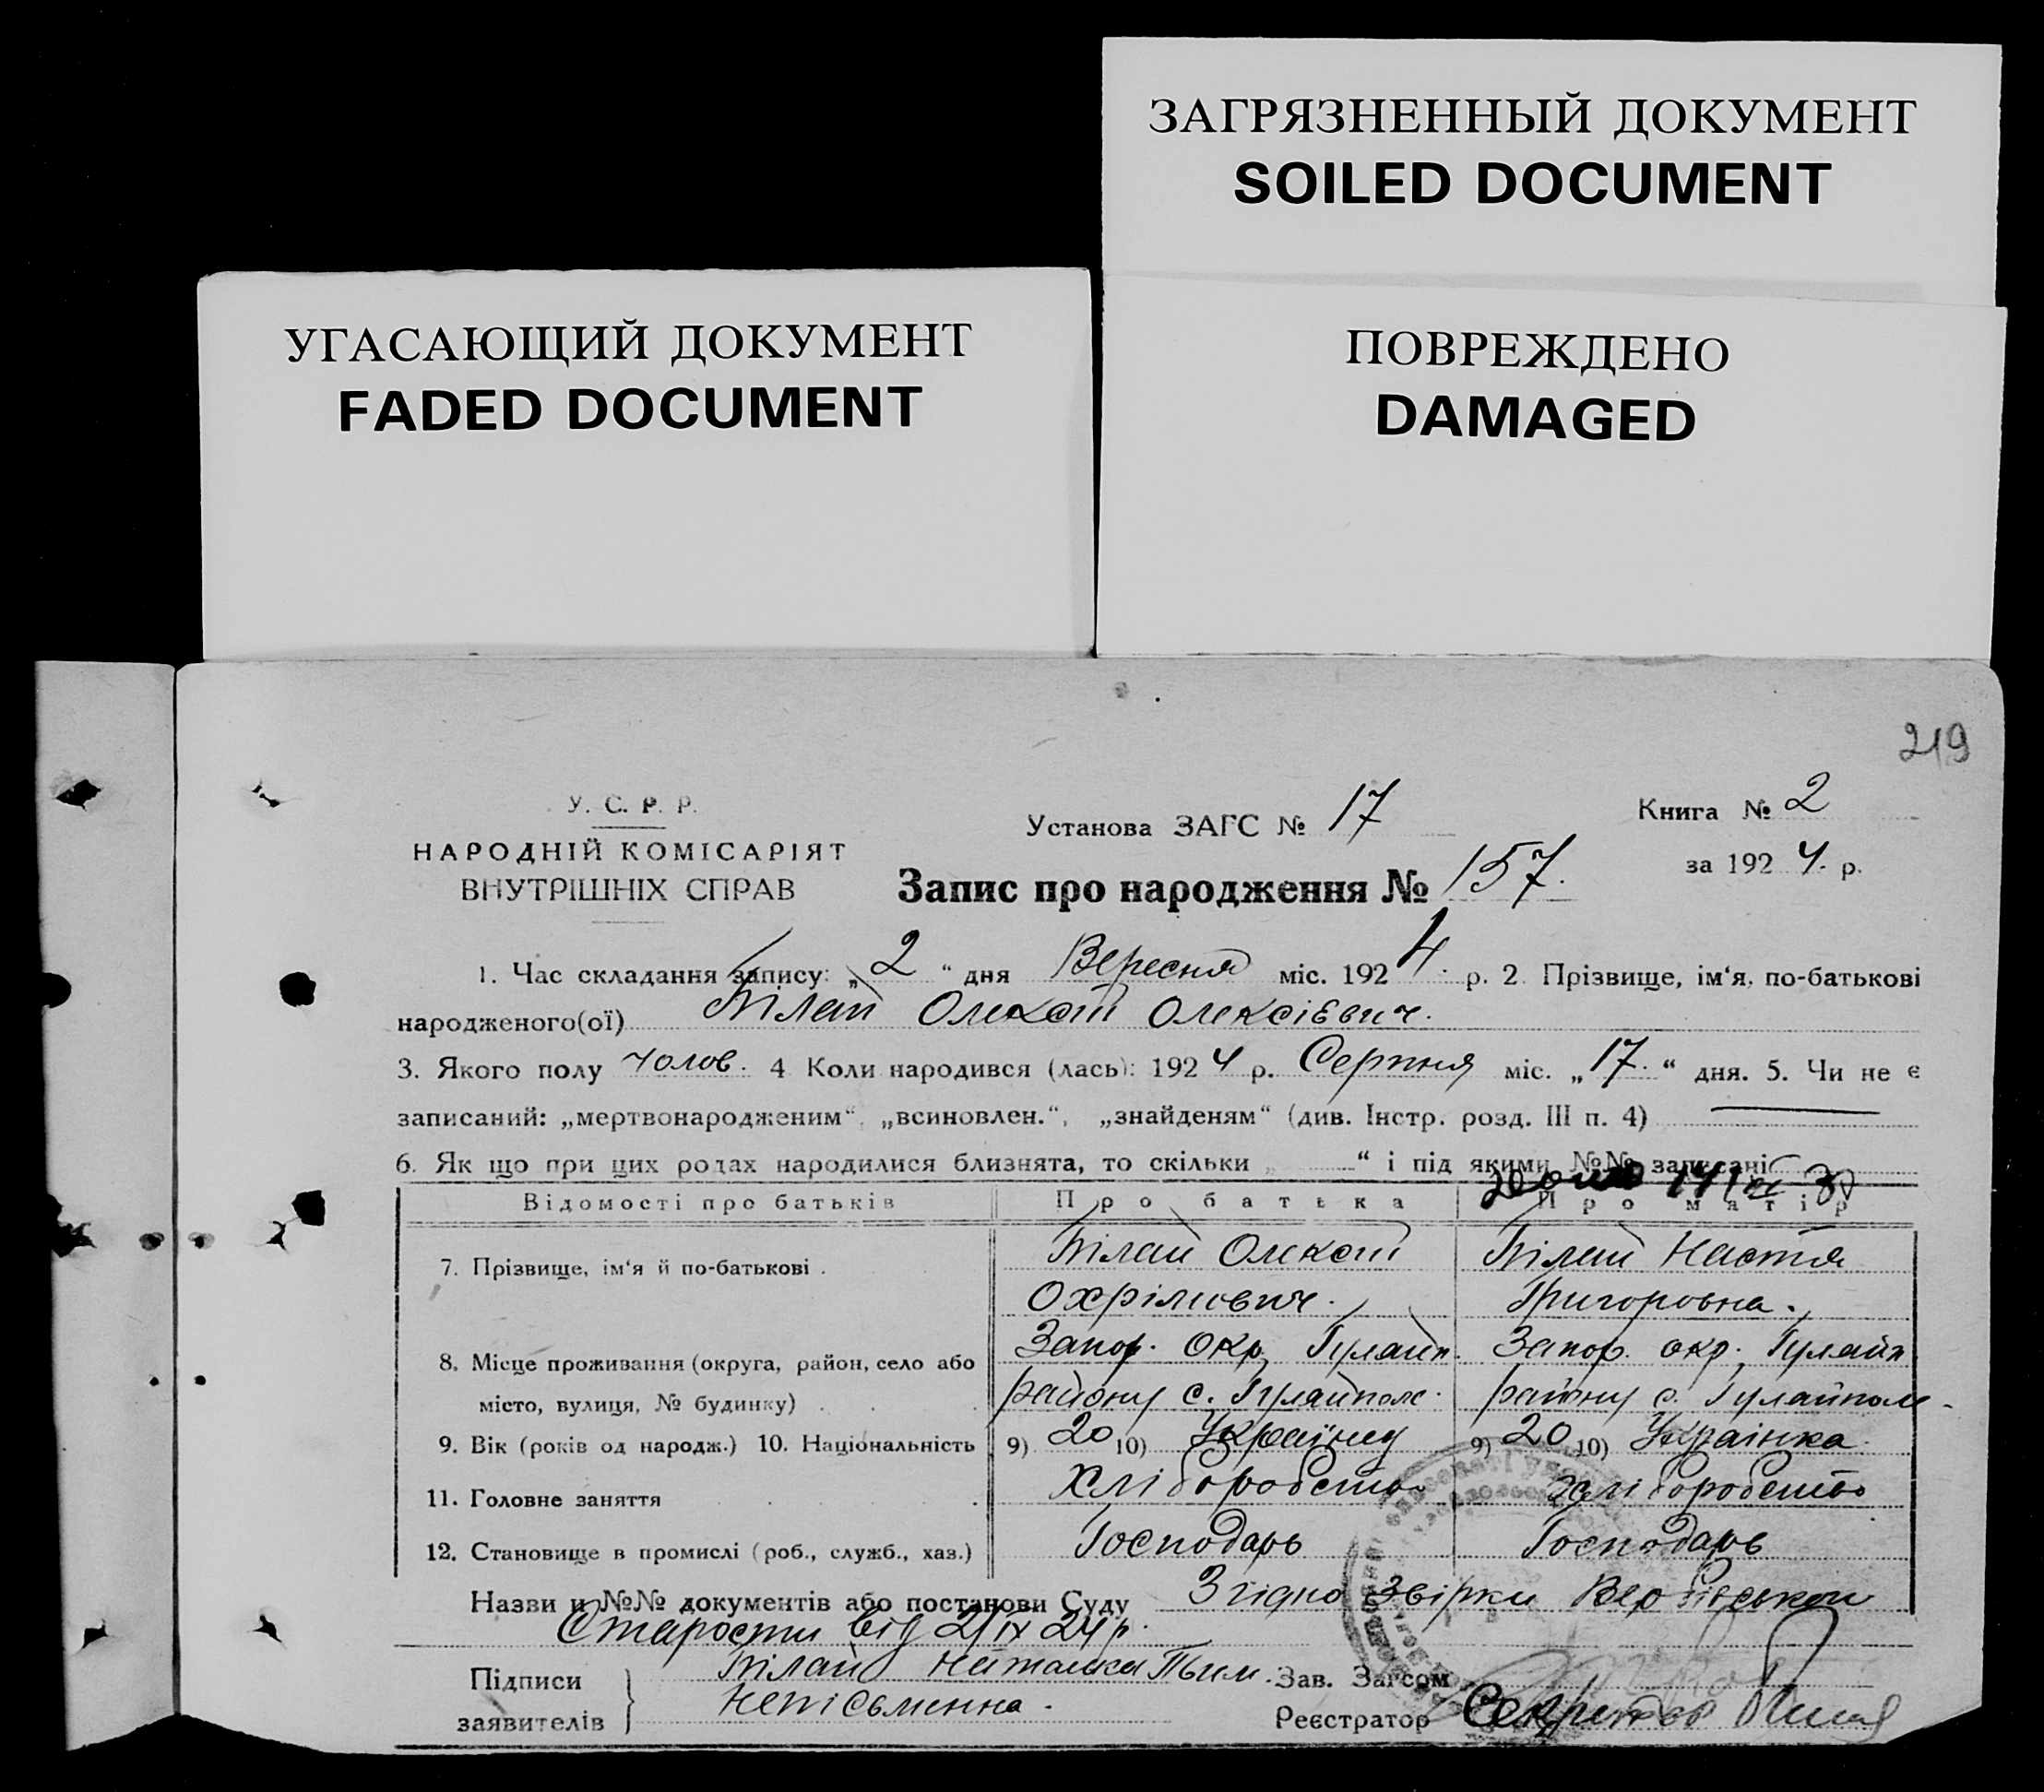 ЗАГРЯЗНЕННЫЙ ДОКУМЕНТ
SOILED DOCUMENT
УГАСАЮЩИЙ ДОКУМЕНТ
FADED DOCUMENT
ПОВРЕЖДЕНО
DAMAGED
219
У. С. Р. Р.
НАРОДНІЙ КОМІСАРІЯТ
ВНУТРІШНІХ СПРАВ
Установа ЗАГС № 17
Книга № 2
за 1924 р.
Запис про народження № 157.
1. Час складання запису: „2“ дня Вересня міс. 1924 р. 2. Прізвище, ім‘я, по-батькові
народженого(ої) Білай Олексій Олексієвич.
3. Якого полу чолов. 4 Коли народився (лась): 1924 р. Серпня міс. „17.“ дня. 5. Чи не є
записаний: „мертвонародженим“, „всиновлен.“, „знайденям“ (див. Інстр. розд. III п. 4)
6. Як що при цих родах народилися близнята, то скільки „ “ і під якими №№ записані
Відомості про батьків Про батька Про матір
7. Прізвище, ім‘я й по-батькові . Білай Олексій Білай Настя
Охрімович. Григоровна.
8. Місце проживання (округа, район, село або Запор. окр. Гуляйп. Запор. окр. Гуляйп.
місто, вулиця, № будинку) . району с. Гуляйполе. району с. Гуляйполе.
9. Вік (років од народж.) 10. Національність 9) 20 10) Українец 9) 20 10) Українка
11. Головне заняття хліборобство хліборобство
12. Становище в промислі (роб., служб., хаз.) Господарь Господарь
Назви и №№ документів або постанови Суду Згідно Звірки Вербівської
Старости від 2/IX 24 р.
Підписи заявителів Білай Наталка Тим.
Непісьменна.
Зав. Загсом
Реєстратор Секретар